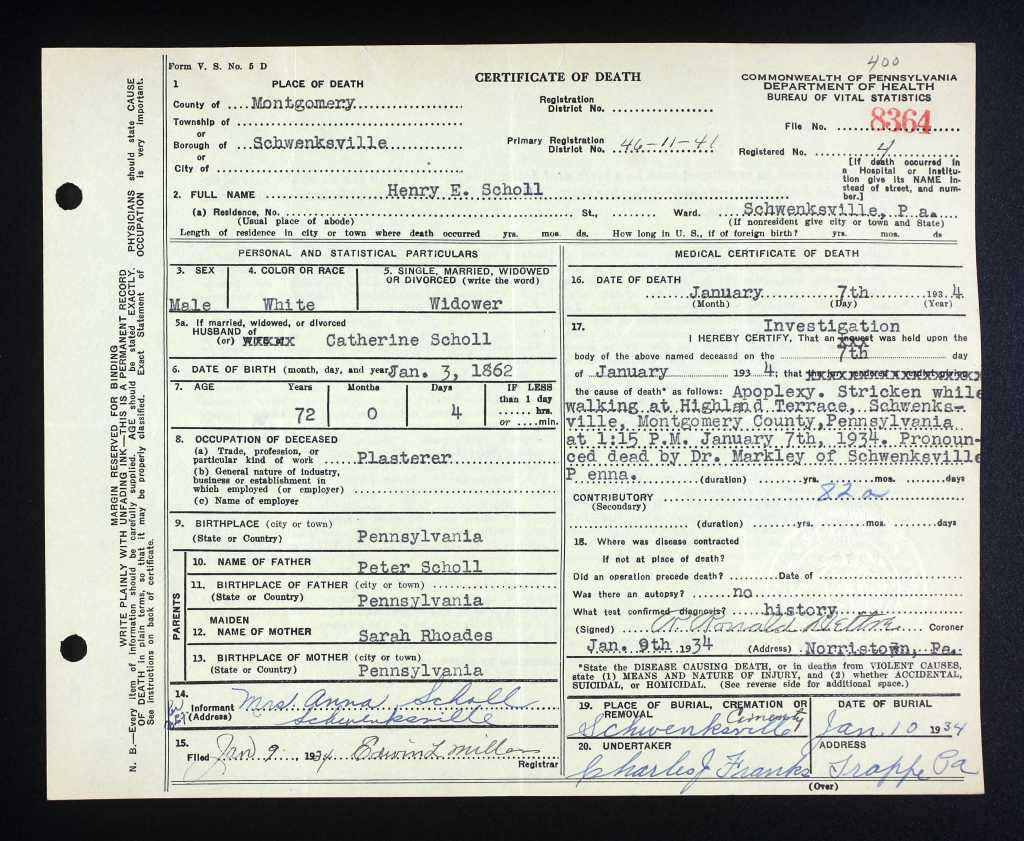 400
Form V. S. No. 5 D
CERTIFICATE OF DEATH
COMMONWEALTH OF PENNSYLVANIA
DEPARTMENT OF HEALTH
BUREAU OF VITAL STATISTICS
1 PLACE OF DEATH
County of Montgomery
Township of
or
Borough of Schwenksville
or
City of
Registration District No.
Primary Registration District No. 46-11-41
File No. 8364
Registered No. 4
[If death occurred in a Hospital or Institution give its NAME instead of street, and number.]
2. FULL NAME Henry E. Scholl
(a) Residence, No. St., Ward. Schwenksville, Pa.
(Usual place of abode) (If nonresident give city or town and State)
Length of residence in city or town where death occurred yrs. mos. ds. How long in U. S., if of foreign birth? yrs. mos. ds
PERSONAL AND STATISTICAL PARTICULARS
3. SEX 4. COLOR OR RACE 5. SINGLE, MARRIED, WIDOWED OR DIVORCED (write the word)
Male White Widower
5a. If married, widowed, or divorced
HUSBAND of
(or) Catherine Scholl
6. DATE OF BIRTH (month, day, and year) Jan. 3, 1862
7. AGE Years Months Days IF LESS than 1 day
72 0 4 hrs. or min.
8. OCCUPATION OF DECEASED
(a) Trade, profession, or particular kind of work Plasterer
(b) General nature of industry, business or establishment in which employed (or employer)
(c) Name of employer
9. BIRTHPLACE (city or town)
(State or Country) Pennsylvania
PARENTS
10. NAME OF FATHER Peter Scholl
11. BIRTHPLACE OF FATHER (city or town)
(State or Country) Pennsylvania
12. MAIDEN NAME OF MOTHER Sarah Rhoades
13. BIRTHPLACE OF MOTHER (city or town)
(State or Country) Pennsylvania
14.
Informant Mrs. Anna Scholl
(Address) Schwenksville
15.
Filed Jan 9, 1934 Edwin L Miller
Registrar
MEDICAL CERTIFICATE OF DEATH
16. DATE OF DEATH
January 7th 1934
(Month) (Day) (Year)
17. Investigation
I HEREBY CERTIFY, That an inquest was held upon the
body of the above named deceased on the 7th day
of January 1934; that the jury rendered a verdict giving
the cause of death* as follows: Apoplexy. Stricken while
walking at Highland Terrace, Schwenks-
ville, Montgomery County,Pennsylvania
at 1:15 P.M. January 7th, 1934. Pronoun-
ced dead by Dr. Markley of Schwenksville
P enna. (duration) yrs. mos. days
CONTRIBUTORY 82 a
(Secondary)
(duration) yrs. mos. days
18. Where was disease contracted
if not at place of death?
Did an operation precede death? Date of
Was there an autopsy? no
What test confirmed diagnosis? history
(Signed) R. Ronald Coroner
Jan. 9th 1934 (Address) Norristown, Pa.
*State the DISEASE CAUSING DEATH, or in deaths from VIOLENT CAUSES,
state (1) MEANS AND NATURE OF INJURY, and (2) whether ACCIDENTAL,
SUICIDAL, or HOMICIDAL. (See reverse side for additional space.)
19. PLACE OF BURIAL, CREMATION OR REMOVAL DATE OF BURIAL
Schwenksville Cemetery Jan. 10 1934
20. UNDERTAKER ADDRESS
Charles J Franks Trappe Pa
(Over)
MARGIN RESERVED FOR BINDING
WRITE PLAINLY WITH UNFADING INK—THIS IS A PERMANENT RECORD
N. B.—Every item of information should be carefully supplied. AGE should be stated EXACTLY. PHYSICIANS should state CAUSE
OF DEATH in plain terms, so that it may be properly classified. Exact Statement of OCCUPATION is very important.
See instructions on back of certificate.